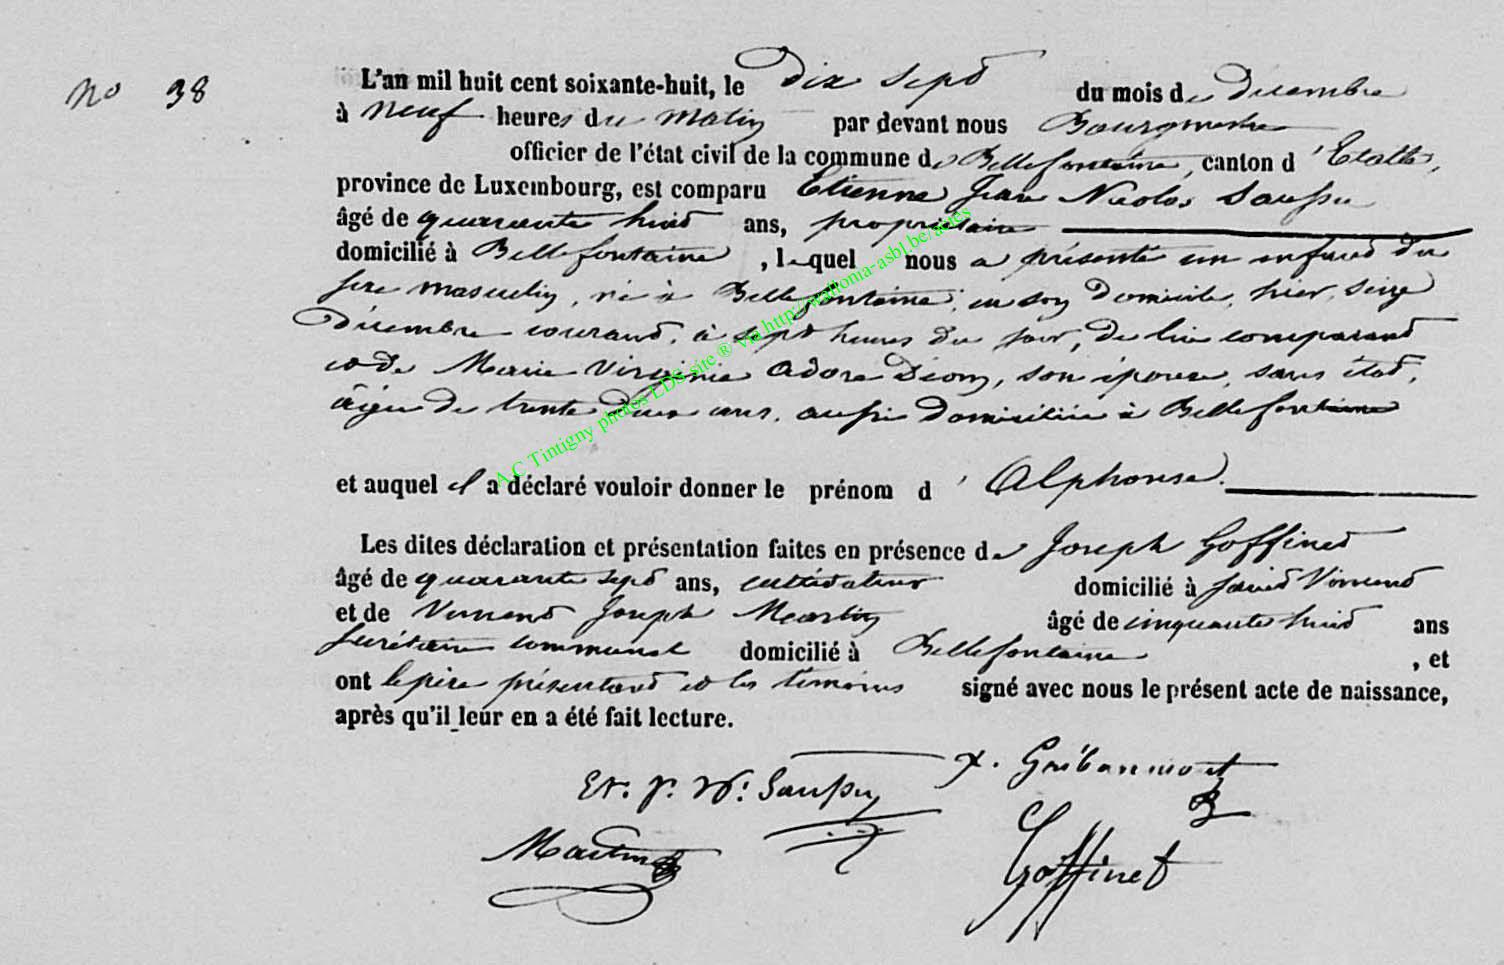 No 38
L'an mil huit cent soixante-huit, le dix sept du mois de Décembre
à neuf heures du matin par devant nous Bourgmestre
officier de l'état civil de la commune de Bellefontaine, canton d'Etalle,
province de Luxembourg, est comparu Etienne Jean Nicolas Saussu
âgé de quarante huit ans, propriétaire
domicilié à Bellefontaine, lequel nous a présenté un enfant du
sexe masculin, né à Bellefontaine, en son domicile, hier, seize
décembre courant, à sept heures du soir, de lui comparant
et de Marie Virginie Adore Dion, son épouse, sans état,
âgée de trente deux ans, aussi domiciliée à Bellefontaine
et auquel il a déclaré vouloir donner le prénom d'Alphonse.
Les dites déclaration et présentation faites en présence de Joseph Goffinet
âgé de quarante sept ans, cultivateur domicilié à Saint Vincent
et de Vincent Joseph Martin âgé de cinquante huit ans
secrétaire communal domicilié à Bellefontaine, et
ont le père présentant et les témoins signé avec nous le présent acte de naissance,
après qu'il leur en a été fait lecture.
Et. J. N. Saussu
Martin
Goffinet
A.C Tintigny photos LDS site ® via http://walloma-asbl.be/actes